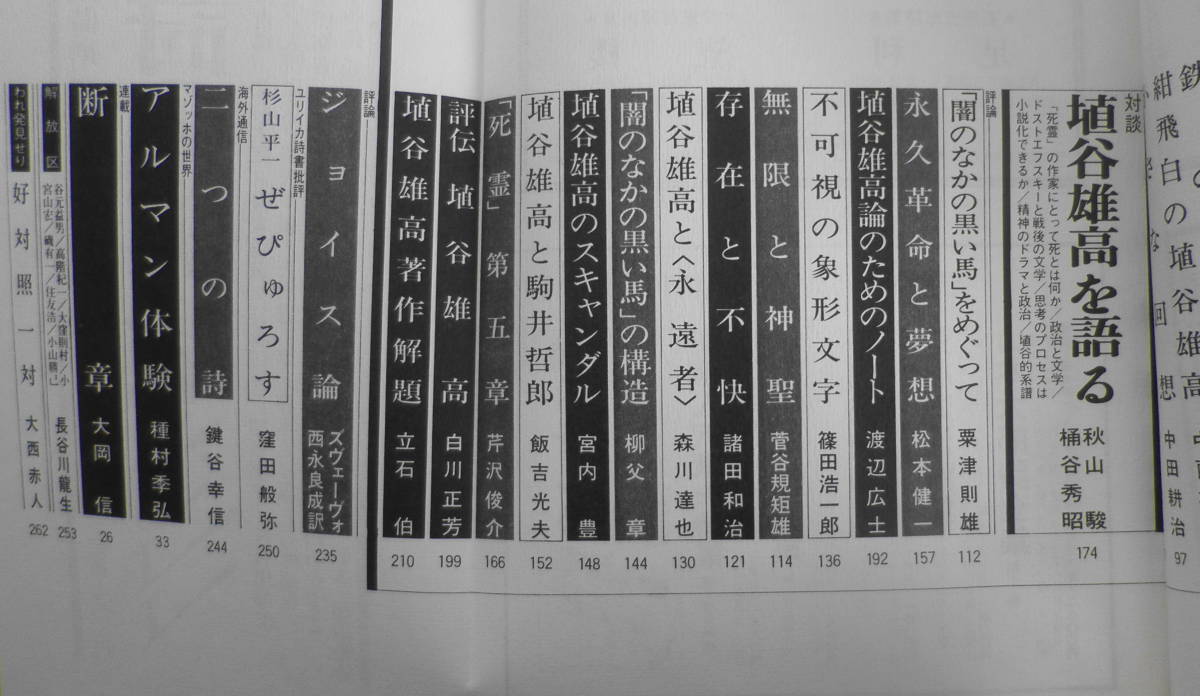 紺飛白の埴谷雄高
回想
中田耕治
97
対談
埴谷雄高を語る
「死霊」の作家にとって死とは何か/政治と文学/
ドストエフスキーと戦後の文学/思考のプロセスは
小説化できるか/精神のドラマと政治/埴谷的系譜
秋山駿
桶谷秀昭
174
評論
「闇のなかの黒い馬」をめぐって
粟津則雄
112
永久革命と夢想
松本健一
157
埴谷雄高論のためのノート
渡辺広士
192
不可視の象形文字
篠田浩一郎
136
無限と神聖
菅谷規矩雄
114
存在と不快
諸田和治
121
埴谷雄高と〈永遠者〉
森川達也
130
「闇のなかの黒い馬」の構造
柳父章
144
埴谷雄高のスキャンダル
宮内豊
148
埴谷雄高と駒井哲郎
飯吉光夫
152
「死霊」第五章
芹沢俊介
166
評伝埴谷雄高
白川正芳
199
埴谷雄高著作解題
立石伯
210
評論
ジョイス論
ズヴェーヴォ
西永良成訳
235
ユリイカ詩書批評
杉山平一 ぜぴゅろす
窪田般弥
250
海外通信
二つの詩
鍵谷幸信
244
マゾッホの世界
アルマン体験
種村季弘
33
連載
断章
大岡信
26
解放区
谷元益男/高階紀一/大窪則村/小
宮山宏/磯有一/住友浩/小山勝己
長谷川龍生
253
われ発見せり
好対照一対
大西赤人
262